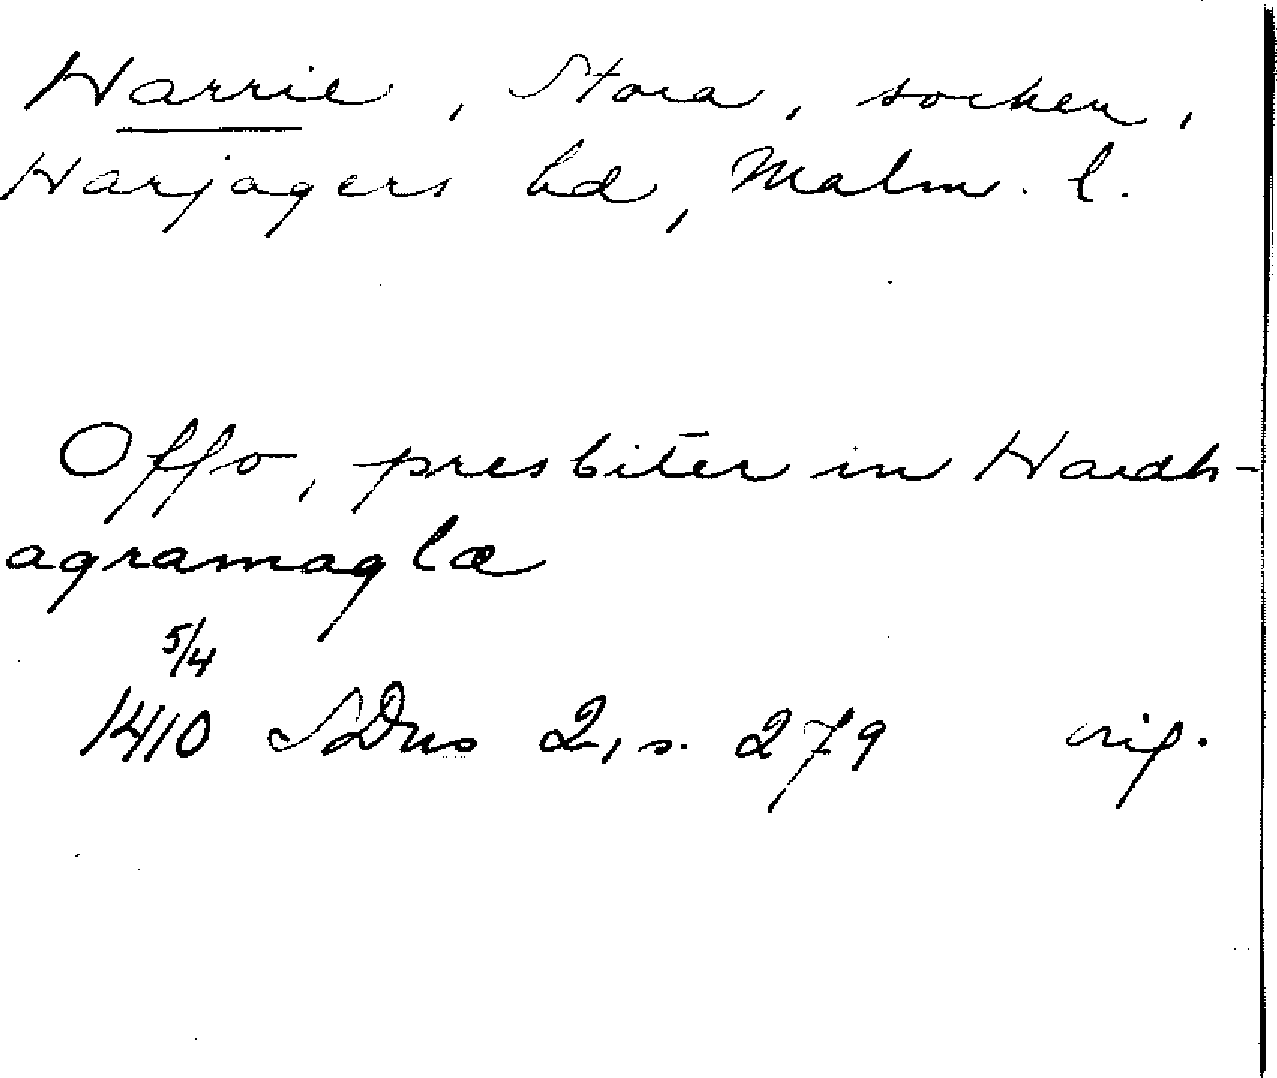 Harrie, Stora, socken,
Harjagers hd, Malm. l.
Offo, presbiter in Hardh-
agramaglæ
5/4
1410 SDns 2, s. 279 orig.